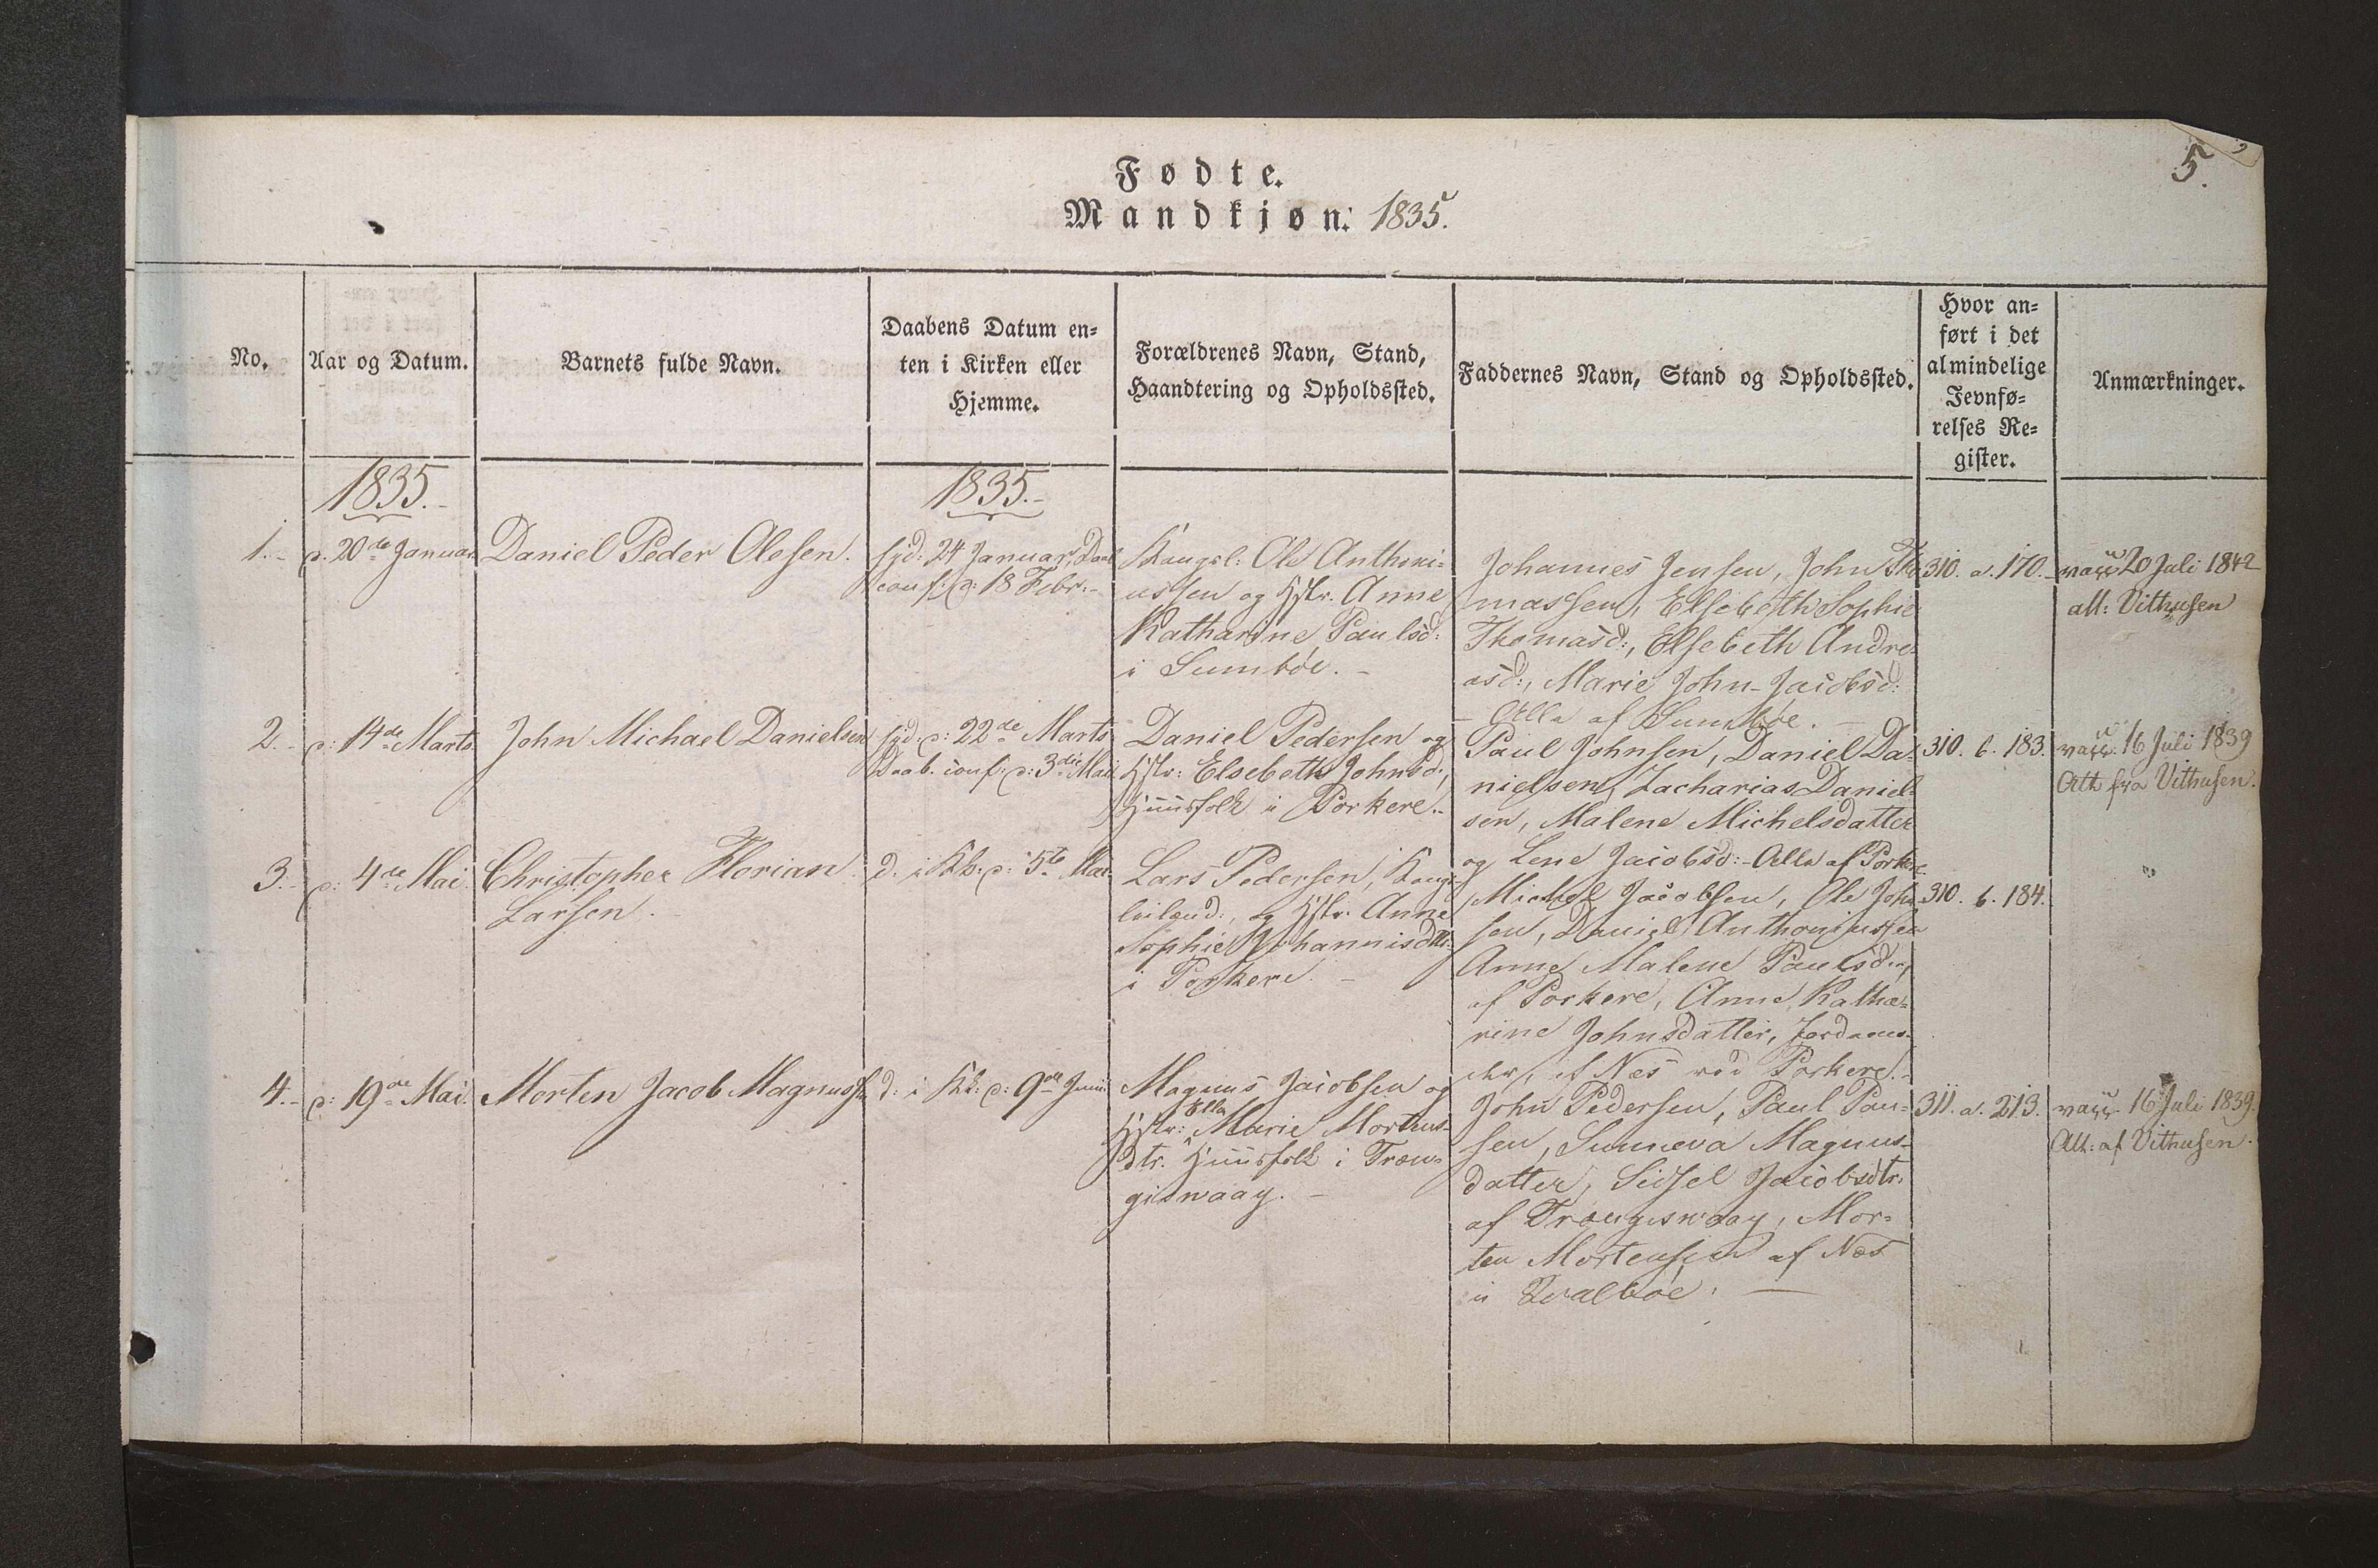 5.
Fødte.
Mandkjøn: 1835.
No.
Aar og Datum.
Barnets fulde Navn.
Daabens Datum en=
ten i Kirken eller
Hjemme.
Forældrenes Navn, Stand,
Haandtering og Opholdssted.
Faddernes Navn, Stand og Opholdssted.
Hvor an=
ført i det
almindelige
Jevnfø=
relses Re=
gister.
Anmærkninger.
1835.-
1835.-
1.-
d. 20de Januar
Daniel Peder Olesen.
hjd: 24 Januar, Daab
conf: d: 18 Febr.-
Kongsl: Ole Anthoni=
ussen og Hstr. Anne
Katharine Paulsd:
i Sumbøe.-
Johannes Jensen, John Tho
massen, Elsebeth Sophie
Thomasd:, Elsebeth Andre=
asd:, Marie John-Jacobsd:
- Alle af Sumbøe.-
310. a. 170.-
vacc 20 Juli 1842
att: Vithusen
2.-
d: 14de Marts
John Michael Danielsen
hjd. d: 22de Marts
Daab. conf: d: 3die Mai
Daniel Pedersen og
Hstr: Elsebeth Johnsd:,
Huusfolk i Porkere.-
Paul Johnsen, Daniel Da=
nielsen, Zacharias Daniel=
sen, Malene Michelsdatter
og Lene Jacobsd:- Alle af Porkere.
310. b. 183.
vacc. 16 Juli 1839
Att fra Vithusen.
3.-
d: 4de Mai.
Christopher Florian
Larsen.
D. i Kk: d: 5te Mai
Lars Pedersen, Kongs
leilænd:, og Hstr. Anne
Sophie Johannisdttr.
i Porkere.-
Michel Jacobsen, Ole John
sen, Daniel Anthoniussen
Anne Malene Paulsdr,
af Porkere, Anne Katha=
rine Johnsdatter, Jordemo-
der, af Næs ved Porkere.-
310. b. 184.
4.-
d: 19de Mai.
Morten Jacob Magnussen
d: i Kk: d: 9de Junii
Magnus Jacobsen og
Hstr: Ella Marie Mortens-
dtr. Huusfolk i Tran-
giswaag.-
John Pedersen, Paul Pau=
sen, Sunneva Magnus-
datter, Sidsel Jacobsdtr.
af Trangiswaag, Mor=
ten Mortensen af Næs
i Qvalbøe.-
311. a. 213.
vacc. 16 Juli 1839.
Att: af Vithusen.